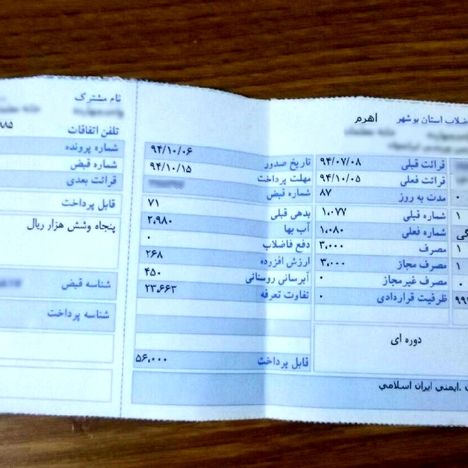 ضلاب استان بوشهر اهرم
قرائت قبلی ۹۴/۰۷/۰۸
قرائت فعلی ۹۴/۱۰/۰۵
مدت به روز ۸۷
شماره قبلی ۱,۰۷۷
شماره فعلی ۱,۰۸۰
مصرف ۳,۰۰۰
مصرف مجاز ۳,۰۰۰
مصرف غیرمجاز ۰
ظرفیت قراردادی ۰
دوره ای
ایمنی ایران اسلامی
تاریخ صدور ۹۴/۱۰/۰۶
مهلت پرداخت ۹۴/۱۰/۱۵
شماره قبض
بدهی قبلی ۷۱
آب بها ۲,۹۸۰
دفع فاضلاب ۰
ارزش افزوده ۲۶۸
آبرسانی روستائی ۴۵۰
تفاوت تعرفه ۲۳,۶۶۳
قابل پرداخت ۵۶,۰۰۰
نام مشترک
تلفن اتفاقات
شماره پرونده
شماره قبض
قرائت بعدی
قابل پرداخت
پنجاه وشش هزار ریال
شناسه قبض
شناسه پرداخت